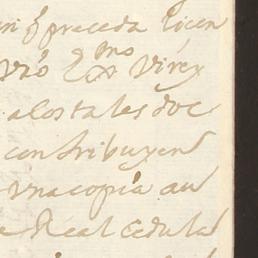 q̃ preceda licen
Virèy
a los tales doc
contribuyen
una copia au
Real Cedula